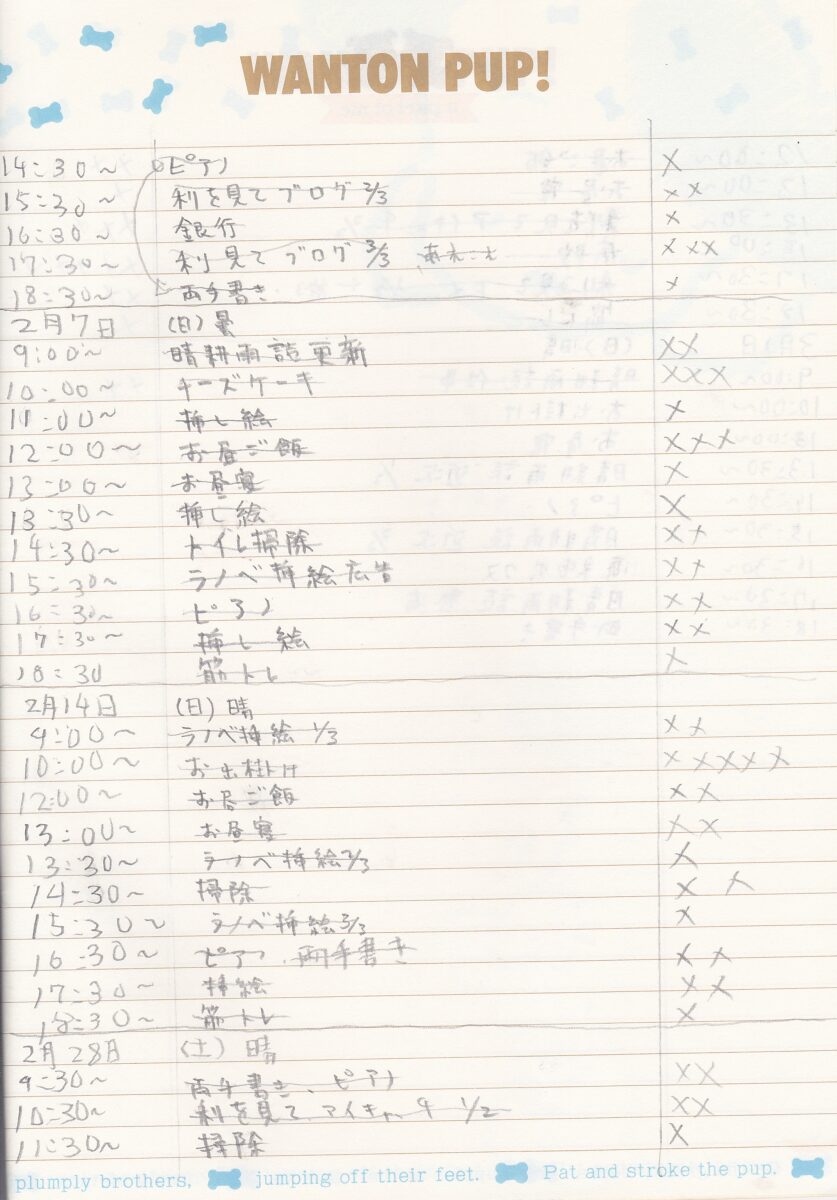 WANTON PUP!
14:30～ ピアノ ×
15:30～ 利を見てブログ 2/3 ××
16:30～ 銀行 ×
17:30～ 利見てブログ 3/3 ×××
18:30～ 両手書き ×
2月7日 (日) 曇
9:00～ 晴耕雨読更新 ××
10:00～ チーズケーキ ×××
11:00～ 挿し絵 ×
12:00～ お昼ご飯 ×××
13:00～ お昼寝 ×
13:30～ 挿し絵 ×
14:30～ トイレ掃除 ××
15:30～ ラノベ挿絵広告 ××
16:30～ ピアノ ××
17:30～ 挿し絵 ××
18:30 筋トレ ×
2月14日 (日) 晴
9:00～ ラノベ挿絵 1/3 ××
10:00～ お出掛け ×××××
12:00～ お昼ご飯 ××
13:00～ お昼寝 ××
13:30～ ラノベ挿絵 2/3 ×
14:30～ 掃除 × ×
15:30～ ラノベ挿絵 3/3 ×
16:30～ ピアノ、両手書き ××
17:30～ 挿絵 ××
18:30～ 筋トレ ×
2月28日 (土) 晴
9:30～ 両手書き、ピアノ ××
10:30～ 利を見て、アイキャッチ 1/2 ××
11:30～ 掃除 ×
plumply brothers, jumping off their feet. Pat and stroke the pup.